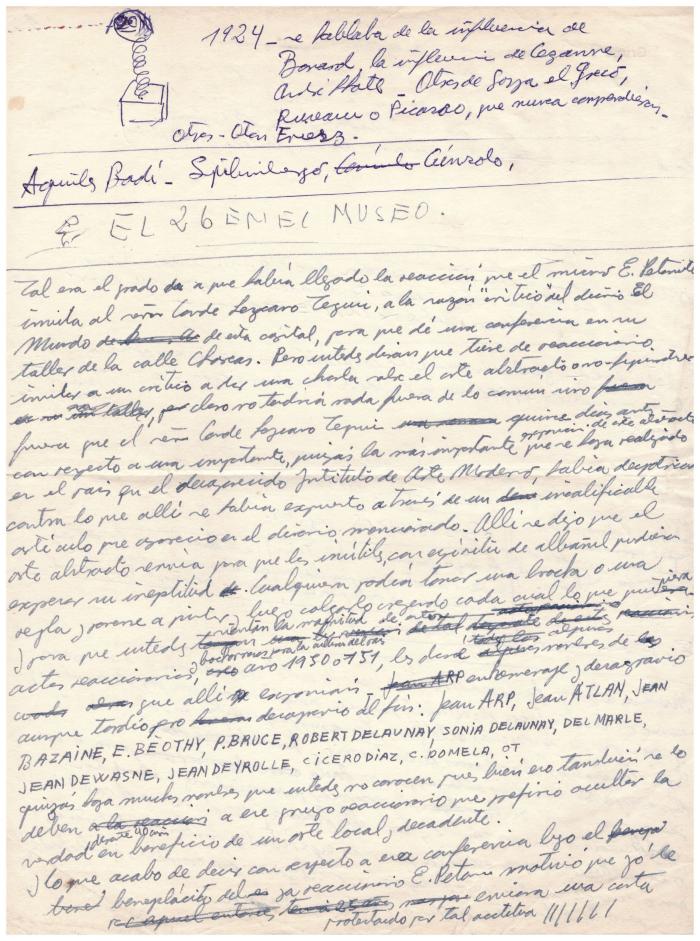 1924 - se hablaba de la influencia de
Bonard, la influencia de Cezanne,
André Lhote - Otros de Goya el Greco,
Rousseau o Picasso, que nunca comprendieron -
otros - Othon Friesz.
Aquiles Badi - Spilimbergo, Génzolo,
EL 26 EN EL MUSEO.
tal era el grado a que había llegado la reacción que el mismo E. Petorutti
invita al señor Conde Lezcano Tegui, a la razón "crítico" del diario El
Mundo de esta capital, para que dé una conferencia en su
taller de la calle Charcas. Pero ustedes dirán que tiene de reaccionario
invitar a un crítico a dar una charla sobre el arte abstracto o no-figurativo
claro no tendría nada fuera de lo común sino
fuera que el señor Conde Lezcano Tegui quince días antes
con respecto a una importante, quizás la más importante exposición de arte abstracto que se haya realizado
en el país en el desaparecido Instituto de Arte Moderno, había
contra lo que allí se había expuesto a través de un incalificable
artículo que apareció en el diario mencionado. Allí se dijo que el
arte abstracto servía para que los inútiles, con espíritu de albañil pudieran
exponer su ineptitud. Cualquiera podía tomar una brocha o una
regla y ponerse a pintar, y luego colgarlo creyendo cada cual lo que quisiera
y para que ustedes sientan la magnitud de estos
actos reaccionarios, bochornosos para la cultura del país año 1950 o 151, les diré algunos nombres de los
que allí exponían, en homenaje y desagravio
aunque tardío pero desagravio al fin: Jean ARP, Jean ATLAN, JEAN
BAZAINE, E. BÉOTHY, P. BRUCE, ROBERT DELAUNAY, SONIA DELAUNAY, DEL MARLE,
JEAN DEWASNE, JEAN DEYROLLE, CICERO DIAZ, C. DOMELA, OT
quizás haya muchos nombres que ustedes no conocen pues bien eso también se lo
deben a ese grupo reaccionario que prefirió ocultar la
verdad durante 40 años en beneficio de un arte local y decadente.
y lo que acabo de decir con respecto a esa conferencia bajo el
beneplácito del ya reaccionario E. Petoru motivó que yo le
enviara una carta
protestando por tal actitud //////